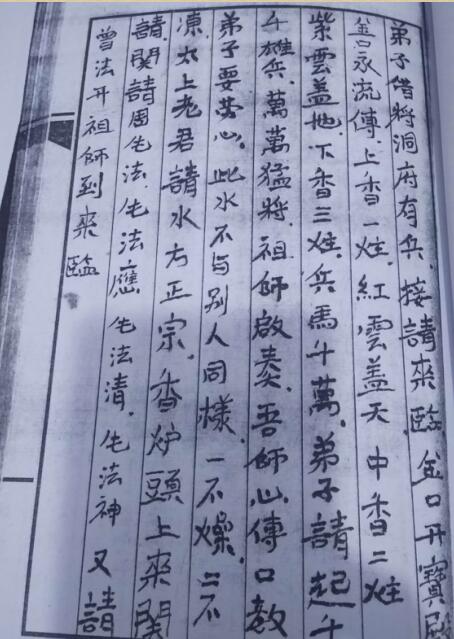 弟子借將洞府有兵、接請來臨、金口開寶殿
金口永流傳、上香一炷、紅雲蓋天 中香二炷
紫雲蓋地、下香三炷、兵馬千萬、弟子請起千
千雄兵、萬萬猛將、祖師啟奏、吾師心傳口教
弟子要苦心、此水不与別人同樣、一不燥、二不
凍、太上老君請水方正宗、香炉頭上來関
請、関請周生法、生法應 生法清、生法神 又請
曾法开祖師到來臨